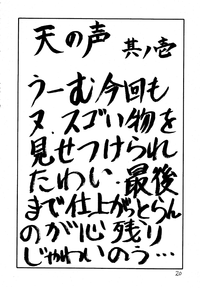 天の声 其ノ壱
うーむ今回も
ヌ、スゴい物を
見せつけられ
たわい。最後
まで仕上がっとらん
のが心残り
じゃわいのう…
20